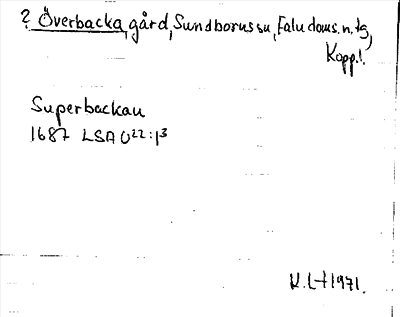 ? Överbacka, gård, Sundborns sn, Falu doms. n. tg,
Kopp. l.
Superbackan
1687 LSA U22:1³
K. L-t 1971.